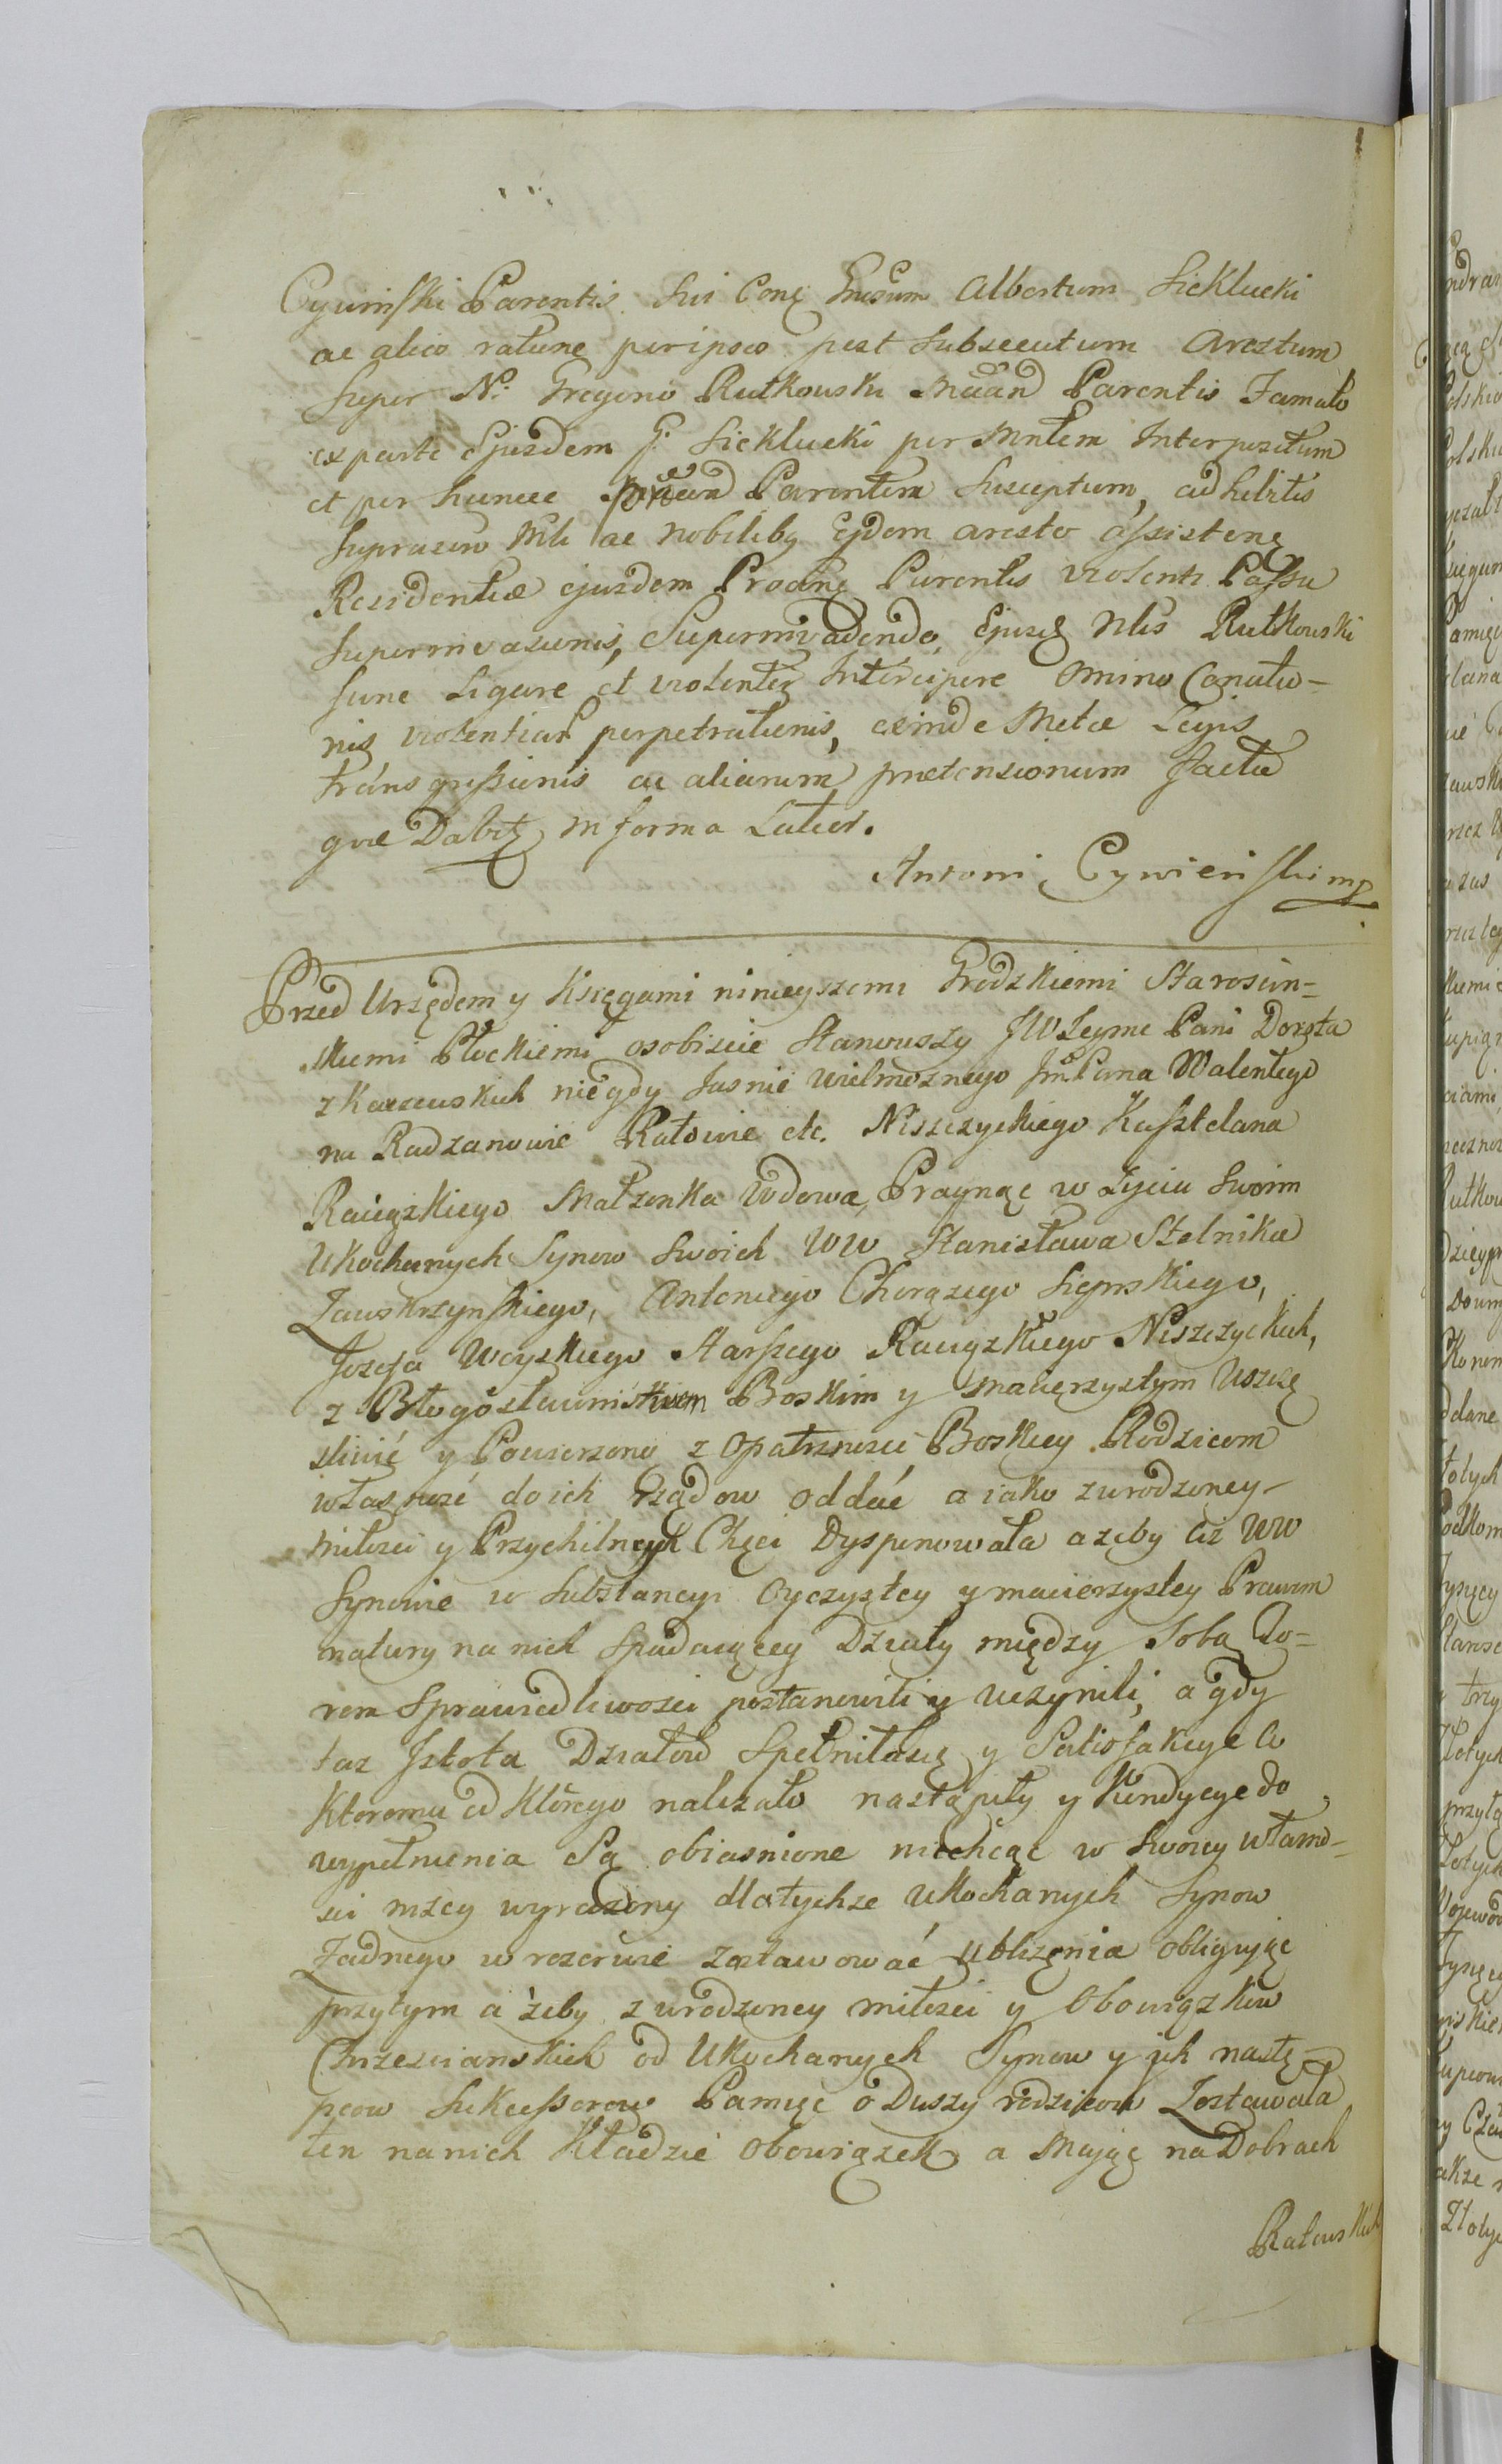 Cywinski Parentis sui Conq Gnosum Albertum Sieklucki
ac alico ratione peripsco post Subsecutum Aresztum
super N. Gregorio Rutkowski Parentis Famulo
ex parte Ejusdem G. Sieklucki per Mnłem Interpositum
et per hunce Parentem Susceptum, adhibitis
suprascro Mli ac Nobilibq Ejdem aresto assistenq
Residentiæ ejusdem Parentis violenti Passu
superinvasionis, Superinvadendo, Ejusq Nlis Rutkowski
fune Ligare et violenter Intercipere Omino Conatio-
nis violentiar perpetrationis, exinde Metæ Legis
transgressionis ac aliarum prætensionum Facta
quæ Dabitq in forma Latior.
Antoni Cywieński mp
Przed Urzędem y Księgami ninieyszemi Grodzkiemi Starościn=
skiemi Płockiemi osobiscie Stanowszy JWJeyme Pani Dorota
z Karzewskich niegdy Jasnie wielmoznego Jm Pana Walentego
na Radzanowie Ratowie etc. Niszczyckiego Kasztelana
Raciązkiego Małzonka Wdowa, Pragnąc w Zyciu Swoim
Ukochanych Synow Swoich WW Stanisława Stolnika
Zawskrzynskiego, Antoniego Chorązego Sieprskiego,
Jozefa Woyskiego Starszego Raciązkiego Niszczyckich,
z Błogosławinstwem Boskim y macierzystym Uszczę
sliwić y Powierzoną z Opatrznosci Boskiey Rodzicom
własnosć do ich rządow oddać a iako zurodzoney
miłosci y Przychilnych Chęci Dysponowała azeby ciz WW
Synowie w Substancyi Oyczystey y macierzystey Prawem
natury na nich Spadaiącey Działy między Sobą To=
rem Sprawiedliwosci postanowili y uczynili, a gdy
taz Jstota Działow Spełniłasię y Satisfakcye Co
Ktoremu od Którego nalezało nastąpiły y Kondycye do
wypełnienia Są obiasnione niechcąc w Swoiey włamo-
sci mzey wyrazony dlatychze Ukochanych Synow
Zadnego w rezerwie zostawować ubliżenia obliguiąc
przytym a żeby z urodzoney miłosci y Obowiązkow
Chrzescianskich od Ukochanych Synow y ich nastę-
pcow Sukcessorow Pamięc o Duszy rodzicow Zostawała
ten na nich Kładzie obowiązek a Maiąc na Dobrach
Ratowskich